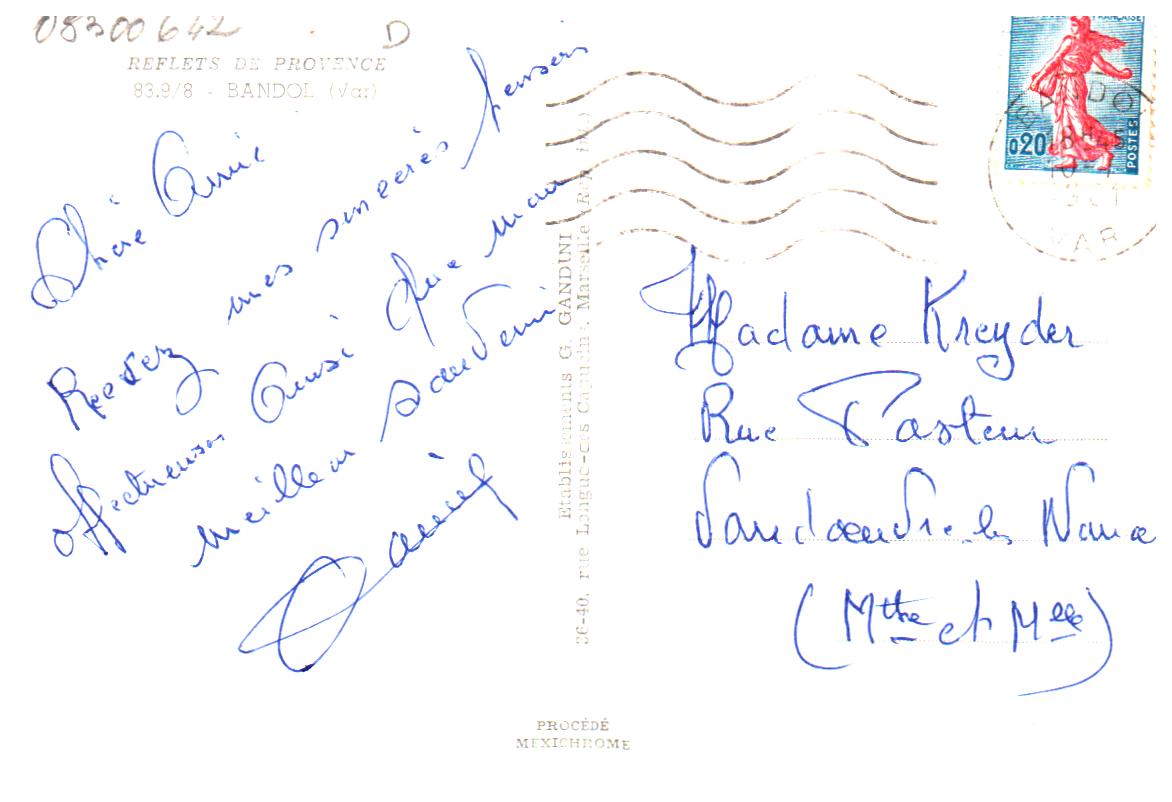 08300642
D
REFLETS DE PROVENCE
83.9/8 - BANDOL (Var)
Chère Amie
Recevez mes sincères pensées
affectueuses Ainsi que mon
meilleur souvenir
Daniel
Etablissements G. GANDINI
36-40, rue Longue-des Capucins. Marseille
PROCÉDÉ
MEXICHROME
FRANÇAISE
0,20
POSTES
BANDOL
18H45
VAR
Madame Kreyder
Rue Pasteur
Vandoeuvre-les Nancy
(Mthe et Mlle)